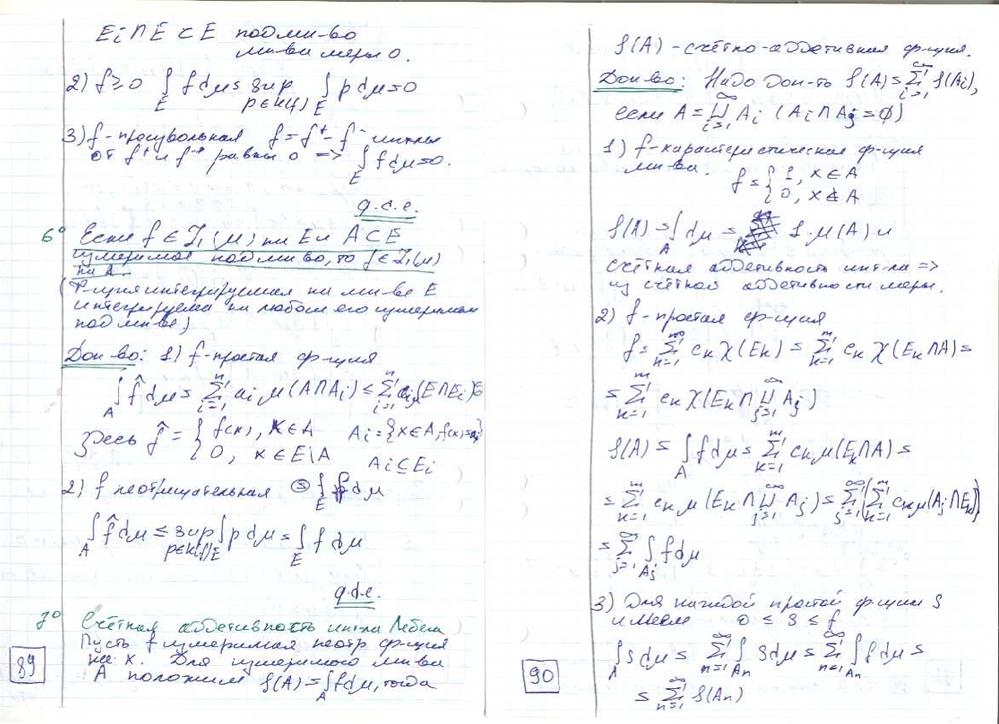 Ei∩E⊂E подмн-во
мн-ва меры 0.
2) f≥0 ∫_E fdμ = sup_{p∈K(f)} ∫_E pdμ=0
3) f-произвольная f=f⁺-f⁻ инт-лы
от f⁺ и f⁻ равны 0 => ∫_E fdμ=0.
q.d.e.
6° Если f∈L₁(μ) на E и A⊂E
измеримое подмн-во, то f∈L₁(μ)
на A.
(Ф-ция интегрируемая на мн-ве E
интегрируема на любом его измеримом
подмн-ве)
Док-во: 1) f-простая ф-ция
∫_A f̂dμ = Σ_{i=1}^n aᵢμ(A∩Aᵢ) ≤ Σ_{i=1}^n aᵢμ(E∩Eᵢ)
Здесь f̂ = { f(x), x∈A Aᵢ={x∈A, f(x)=aᵢ}
0, x∈E\A Aᵢ⊆Eᵢ
2) f неотрицательная = ∫_E fdμ
∫_A f̂dμ ≤ sup_{p∈K(f)} ∫_E pdμ = ∫_E fdμ
q.d.e.
7° Счётная аддетивность инт-ла Лебега
Пусть f измеримая неотр ф-ция
на X. Для измеримого мн-ва
A положим ρ(A)=∫_A fdμ, тогда
89
ρ(A)-счётно-аддетивная ф-ция.
Док-во: Надо док-ть ρ(A)=Σ_{i=1}^∞ ρ(Ai),
если A=⨆_{i=1}^∞ Ai (Ai∩Aj=∅)
1) f-характеристическая ф-ция
мн-ва. f={ 1, x∈A
0, x∉A
ρ(A)=∫_A dμ = 1·μ(A) и
счётная аддетивность инт-ла =>
из счётной аддетивности меры.
2) f-простая ф-ция
f=Σ_{k=1}^m cₖχ(Eₖ) = Σ_{k=1}^m cₖχ(Eₖ∩A) =
= Σ_{k=1}^m cₖχ(Eₖ∩⨆_{j=1}^∞ Aj)
ρ(A) = ∫_A fdμ = Σ_{k=1}^m cₖμ(Eₖ∩A) =
= Σ_{k=1}^m cₖμ(Eₖ∩⨆_{j=1}^∞ Aj) = Σ_{j=1}^∞ (Σ_{k=1}^m cₖμ(Aj∩Eₖ))
= Σ_{j=1}^∞ ∫_{Aj} fdμ
3) Для каждой простой ф-ции S
имеем 0 ≤ S ≤ f
∫_A Sdμ = Σ_{n=1}^∞ ∫_{An} Sdμ ≤ Σ_{n=1}^∞ ∫_{An} fdμ =
= Σ_{n=1}^∞ ρ(An)
90